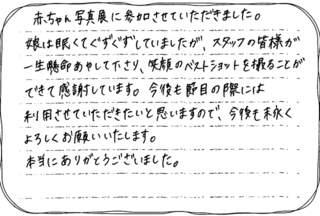 赤ちゃん写真展に参加させていただきました。
娘は眠くてぐずぐずしていましたが、スタッフの皆様が
一生懸命あやして下さり、笑顔のベストショットを撮ることが
できて感謝しています。今後も節目の際には
利用させていただきたいと思いますので、今後も末永く
よろしくお願いいたします。
本当にありがとうございました。